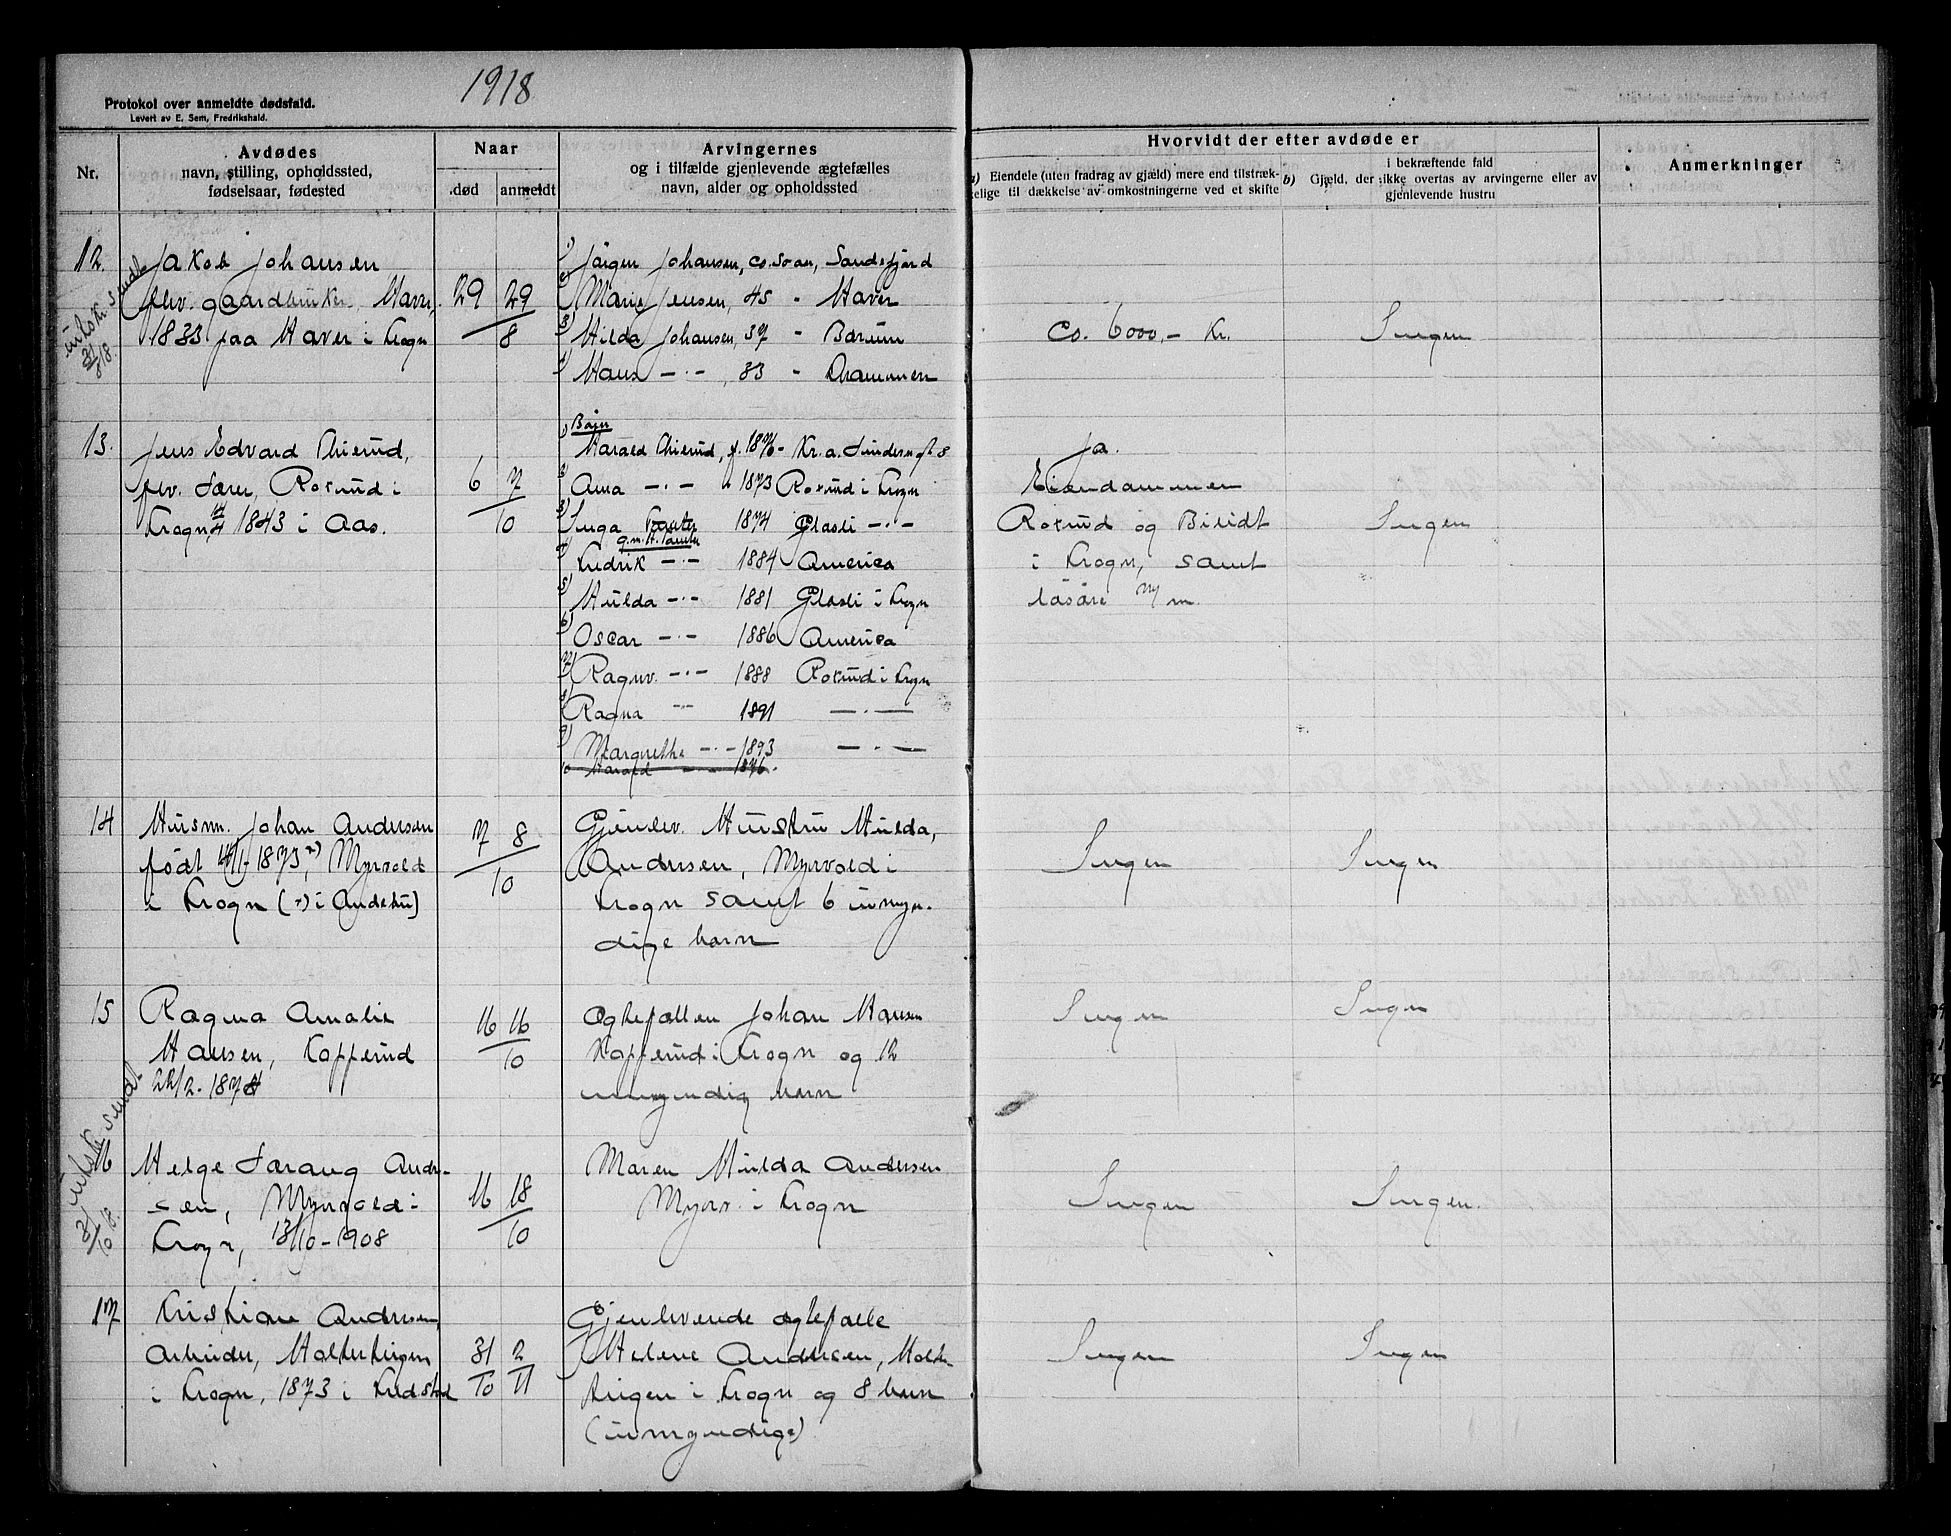 1918
Protokol over anmeldte dødsfald.
Levert av E. Sem, Fredrikshald.
Nr.
Avdødes
navn, stilling, opholdssted,
fødselsaar, fødested
Naar
død
anmeldt
Arvingernes
og i tilfælde gjenlevende ægtefælles
navn, alder og opholdssted
Hvorvidt der efter avdøde er
a) Eiendele (uten fradrag av gjæld) mere end tilstræk-
kelige til dækkelse av omkostningerne ved et skifte
i bekræftende fald
b) Gjæld, der ikke overtas av arvingerne eller av
gjenlevende hustru
Anmerkninger
12.
Jakob Johansen
flv. gaardbruker, Haver,
1833 paa Haver i Krogn
29 29
8
1) Jörgen Johansen, ca. 50 aar, Sandefjord
2) Marie Jensen, 45 " Haver
3) Hilda Johansen, 37 " Bærum
4) Hans -"- , 33 " Drammen
ca. 6000,- Kr.
Ingen
31/8 18.
13.
Jens Edvard Thierud,
flv. Lærer, Rortud i
Krogn, 1843 i Aas.
6 7
10
1) Harald Thierud, f. 1876 - Kr.a.
2) Anna -"- " 1873 Rortud i Krogn
3) Inga 1874 Glasli -"-
4) Fredrik -"- 1884 America
5) Hulda -"- 1881 Glasli i Krogn
6) Oscar -"- 1886 America
7) Ragnv. -"- 1888 Rortud i Krogn
8) Ragna -"- 1891 -"-
9) Margrethe -"- 1893 -"-
10 Harald -"- 1876.
Ja.
Eiendommen
Rortud og Bilidt
i Krogn, samt
lösöre m/m
Ingen
14
Husm. Johan Andersen
født 14/1-1873, Myrvold
i Krogn
7 8
10
Gjenlev. Hustru Hulda,
Andersen, Myrvold i
Krogn samt 6 umyn-
dige barn
Ingen
Ingen
15
Ragna Amalie
Hansen, Kopperud
22/2-1878
16 16
10
Ægtefællen Johan Hansen
Kopperud i Krogn og 12
umyndig barn
Ingen
Ingen
16
Helge Andr-
sen, Myrvold i
Krogn, 13/10-1908
16 18
10
Maren Hulda Andersen
Myrv. i Krogn
Ingen
Ingen.
31/10 18.
17
Kristian Andersen,
Arbeider, Holtertangen
i Krogn, 1873 i Fredstad
31 2
10 11
Gjenlevende ægtefælle
Helene Andersen, Holter-
tangen i Krogn og 8 barn
(umyndige)
Ingen
Ingen